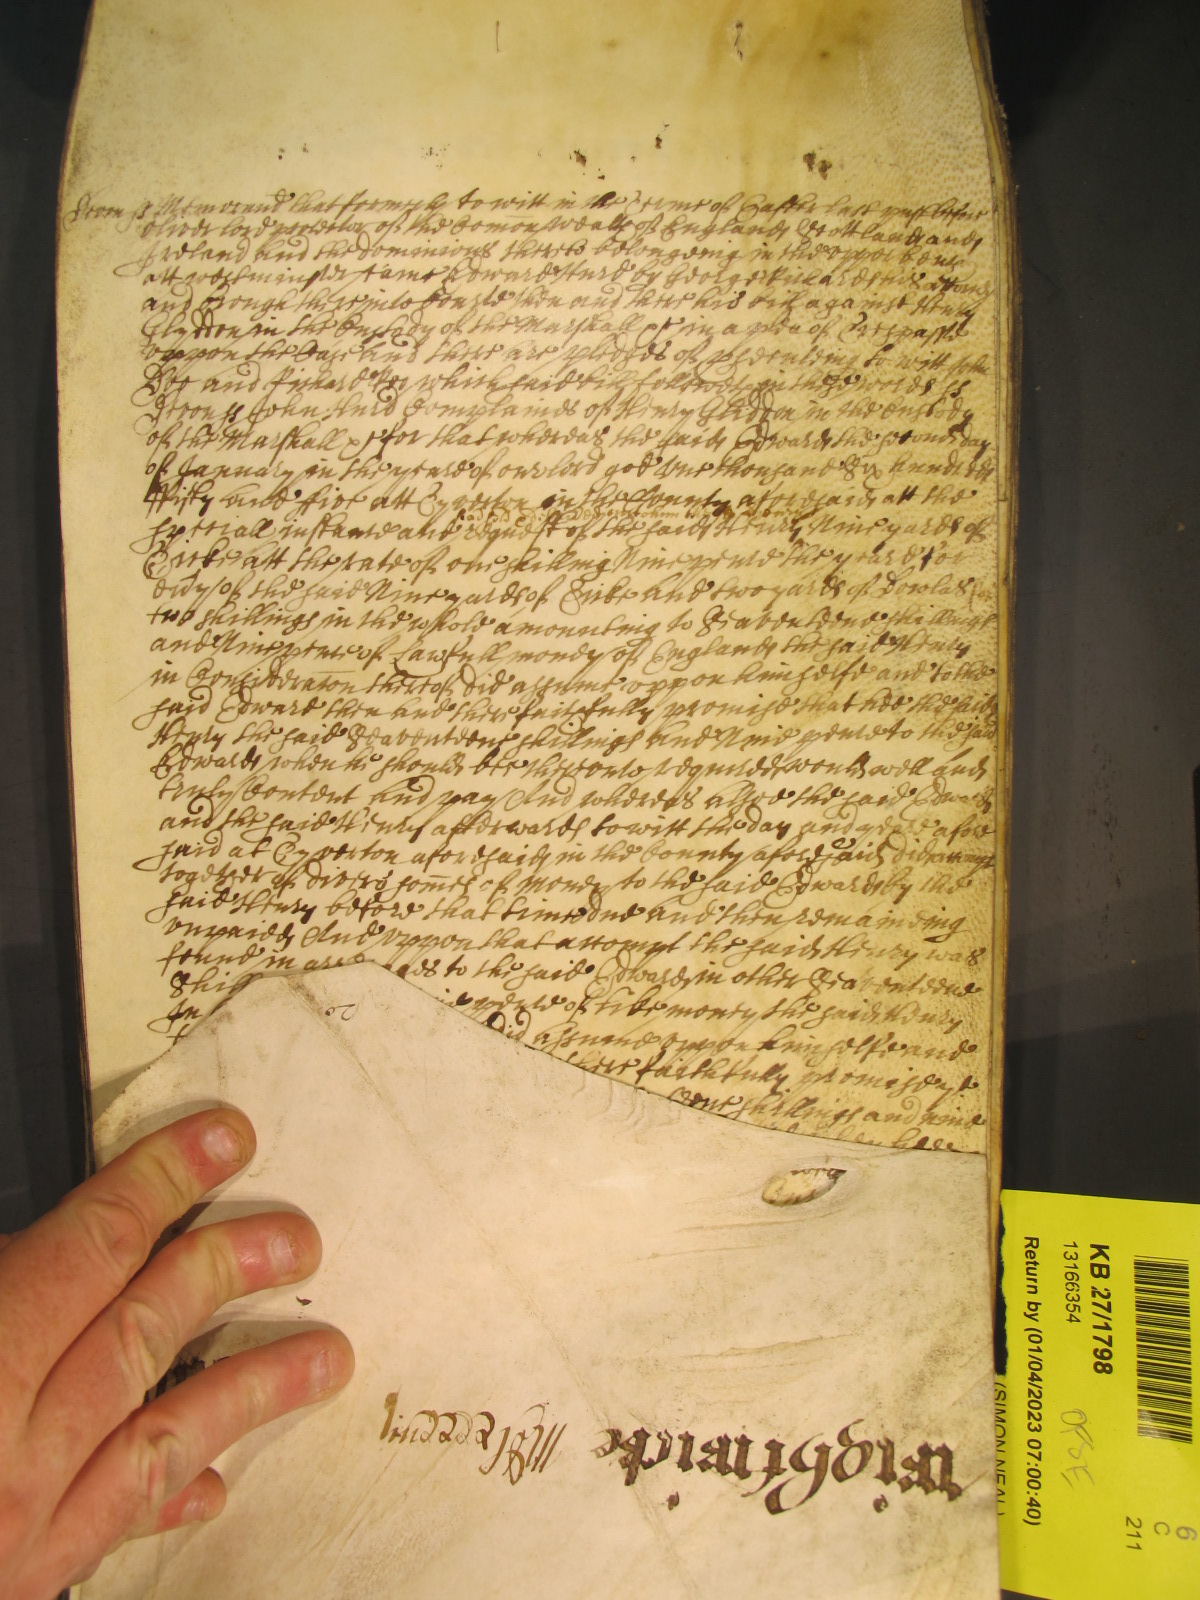 Devon ss Memorand that formerly to witt in the Terme of Easter last past before
Oliver lord protector of the Comonwealth of England Scotland and
Ireland and the dominions thereto belongeing in the upper bench
att westminster came Edward Hurd by George Rickard his attorny
and brought here into Courte then and there his bill against Henry
Gliddon in the Custody of the Marshall &c in a plea of Trespasse
uppon the Case And there are pledges of prosecuteing to witt John
Doe and Richard Roe which said bill followeth in these words ss
Devon ss John Hurd Complaines of Henry Gliddon in the Custody
of the Marshall &c for that whereas the said Edward the second day
of January in the yeare of our lord god One thousand Six hundred
Fifty and ffive att Tyverton in the County aforesaid att the
speciall instance and request of the said Henry Nine yards of
att the rate of one shilling Nine pence the yeard for
every of the said Nine yards of and two yards of Dowlas for
two shillings in the whole amounting to Seaventeene shillings
and Nine pence of Lawfull money of England the said Henry
in Consideracon thereof did assume uppon himselfe and to the
said Edward then and there faithfully promise that hee the said
Henry the said Seaventeene shillings and Nine pence to the said
Edward when he should bee thereunto required would well and
truly Content and pay And whereas alsoe the said Edward
and the said Henry afterwards to witt the day and yeare afore
said at Tyverton aforesaid in the County aforesaid did accompt
together of divers somes of money to the said Edward by the
said Henry before that time due and then remaineing
unpaid And uppon that accompt the said Henry was
found in arrerages to the said Edward in other Seaventeene
Shil pence of like money the said Henry
In did assume uppon himselfe and
there faithfully promise &c
shillings and nine
wightwicke
KB 27/1798
13166354
Return by (01/04/2023 07:00:40)
(SIMON NEAL)
6
C
211